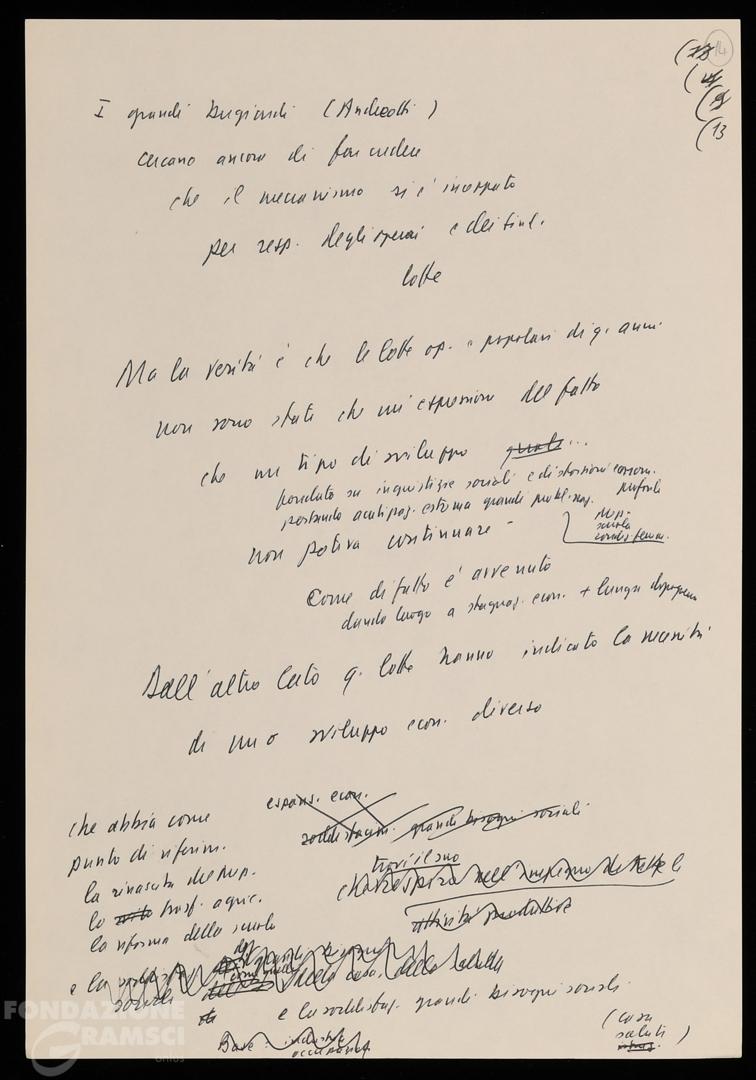 14
(13
I grandi bugiardi (Andreotti)
cercano ancora di far credere
che il meccanismo si è inceppato
per resp. degli operai e dei sind.
lotte
Ma la verità è che le lotte op. e popolari di q. anni
non sono state che un'espressione del fatto
che un tipo di sviluppo quale...
fondato su ingiustizie sociali e distorsioni consum.
portando acutizzaz. estrema grandi probl. naz. profonde
Mezz.
scuola
condiz. femm.
non poteva continuare -
Come di fatto è avvenuto
dando luogo a stagnaz. econ. + lunga dopoguerra
Dall'altro lato q. lotte hanno indicato la necessità
di uno sviluppo econ. diverso
che abbia come
espans. econ.
punto di riferim.
soddisfacim. grandi bisogni sociali
la rinascita del Mezz.
trovi il suo
la trasf. agric.
attività produttive
la riforma della scuola
e la
sociali
e la soddisfaz. grandi bisogni sociali
(casa
salute
)
Base: industria
occupazione
FONDAZIONE
GRAMSCI
onlus